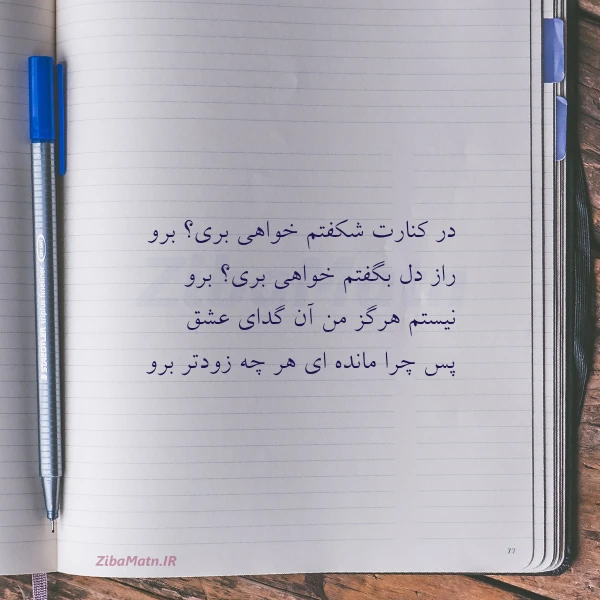 در کنارت شکفتم خواهی بری؟ برو
راز دل بگفتم خواهی بری؟ برو
نیستم هرگز من آن گدای عشق
پس چرا مانده ای هر چه زودتر برو
ZibaMatn.IR